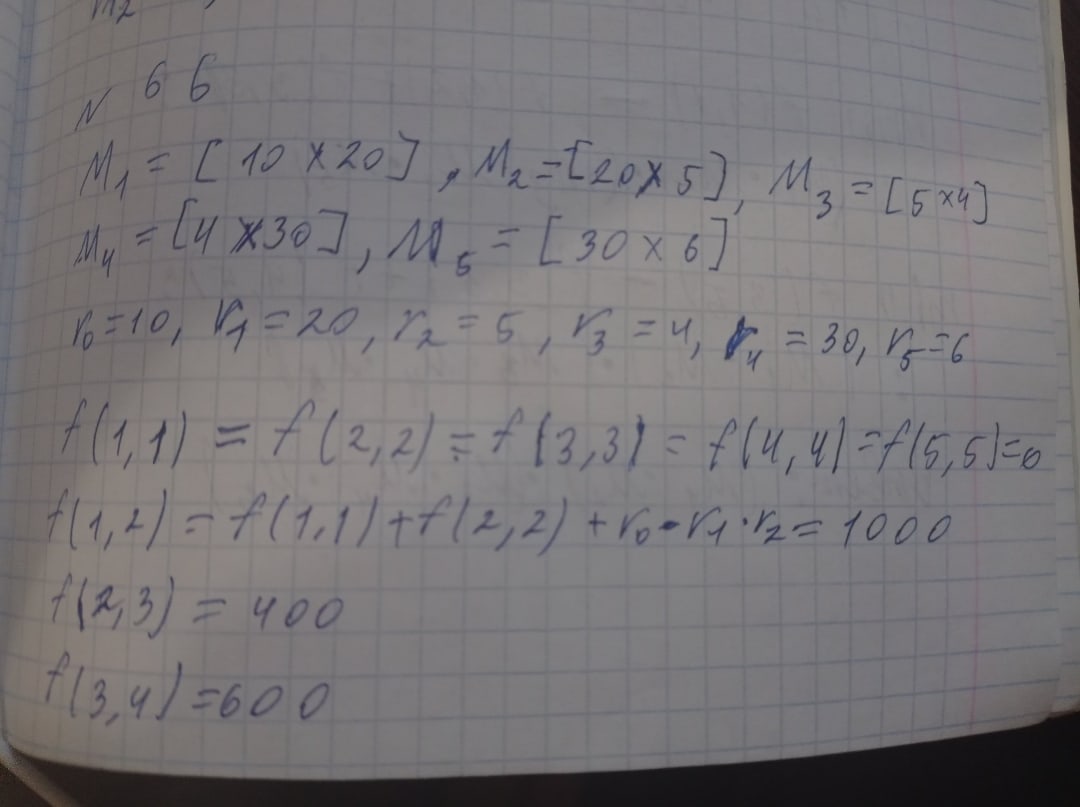 M₂
N 66
M₁ = [10 × 20], M₂ = [20 × 5], M₃ = [5 × 4]
M₄ = [4 × 30], M₅ = [30 × 6]
r₀ = 10, r₁ = 20, r₂ = 5, r₃ = 4, r₄ = 30, r₅ = 6
f(1,1) = f(2,2) = f(3,3) = f(4,4) = f(5,5) = 0
f(1,2) = f(1,1) + f(2,2) + r₀ · r₁ · r₂ = 1000
f(2,3) = 400
f(3,4) = 600